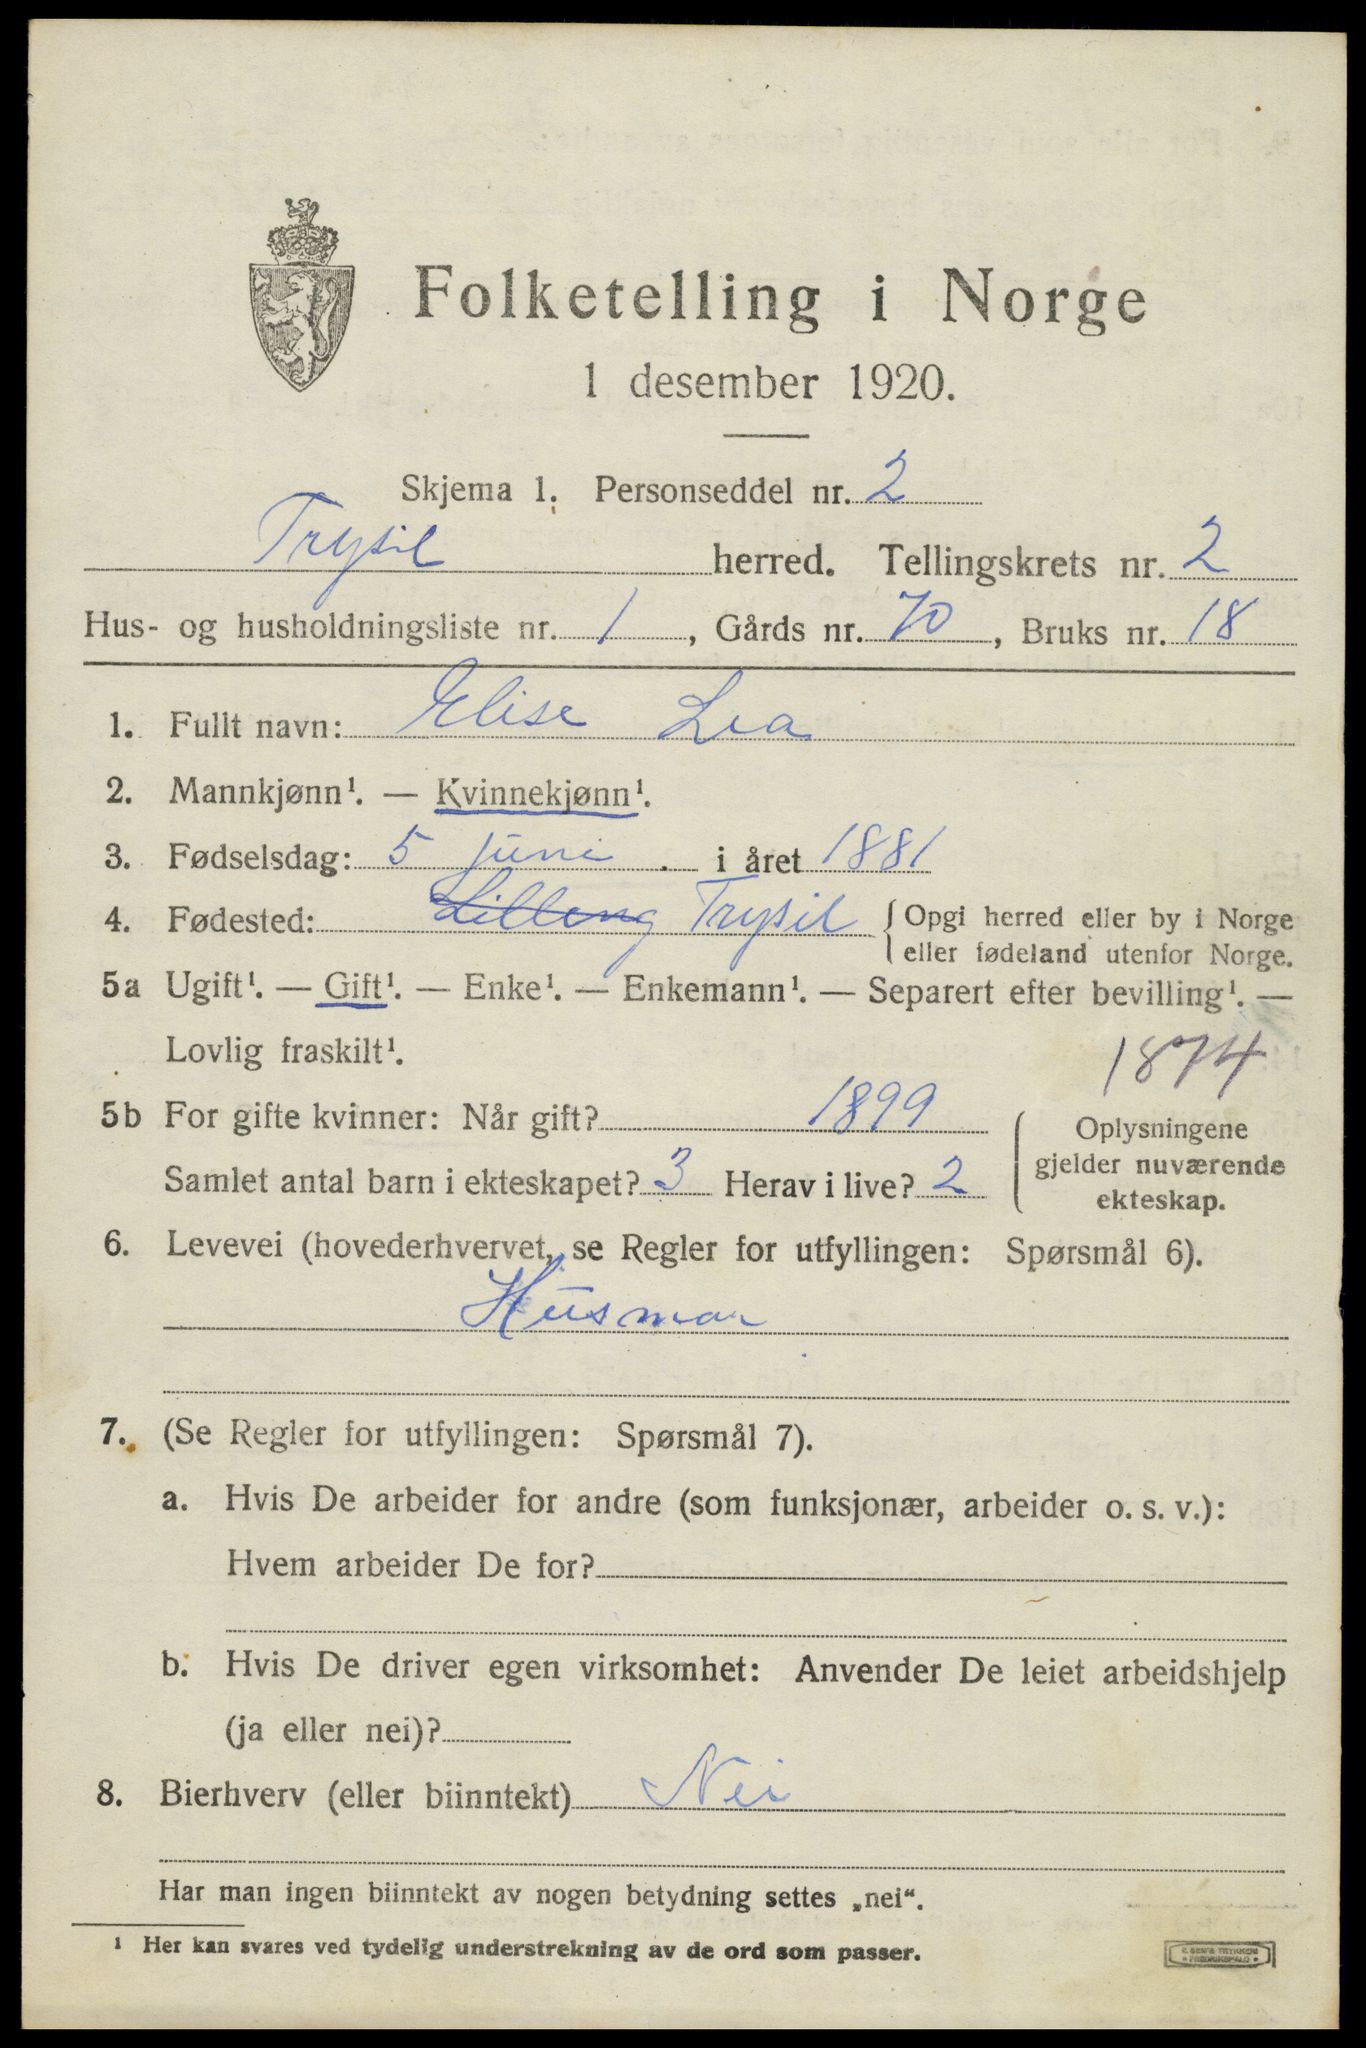 Folketelling i Norge
1 desember 1920.
Skjema 1. Personseddel nr. 2
Trysil herred. Tellingskrets nr. 2
Hus- og husholdningsliste nr. 1, Gårds nr. 70, Bruks nr. 18
1. Fullt navn: Elise Lea
2. Mannkjønn¹. — Kvinnekjønn¹.
3. Fødselsdag: 5 juni i året 1881
4. Fødested: Lilleng Trysil {Opgi herred eller by i Norge
eller fødeland utenfor Norge.
5a Ugift¹. — Gift¹. — Enke¹. — Enkemann¹. — Separert efter bevilling¹. —
Lovlig fraskilt¹.
1874
5b For gifte kvinner: Når gift? 1899
Samlet antal barn i ekteskapet? 3 Herav i live? 2
Oplysningene
gjelder nuværende
ekteskap.
6. Levevei (hovederhvervet, se Regler for utfyllingen: Spørsmål 6).
Husmor
7. (Se Regler for utfyllingen: Spørsmål 7).
a. Hvis De arbeider for andre (som funksjonær, arbeider o. s. v.):
Hvem arbeider De for?
b. Hvis De driver egen virksomhet: Anvender De leiet arbeidshjelp
(ja eller nei)?
8. Bierhverv (eller biinntekt) Nei
Har man ingen biinntekt av nogen betydning settes „nei“.
¹ Her kan svares ved tydelig understrekning av de ord som passer.